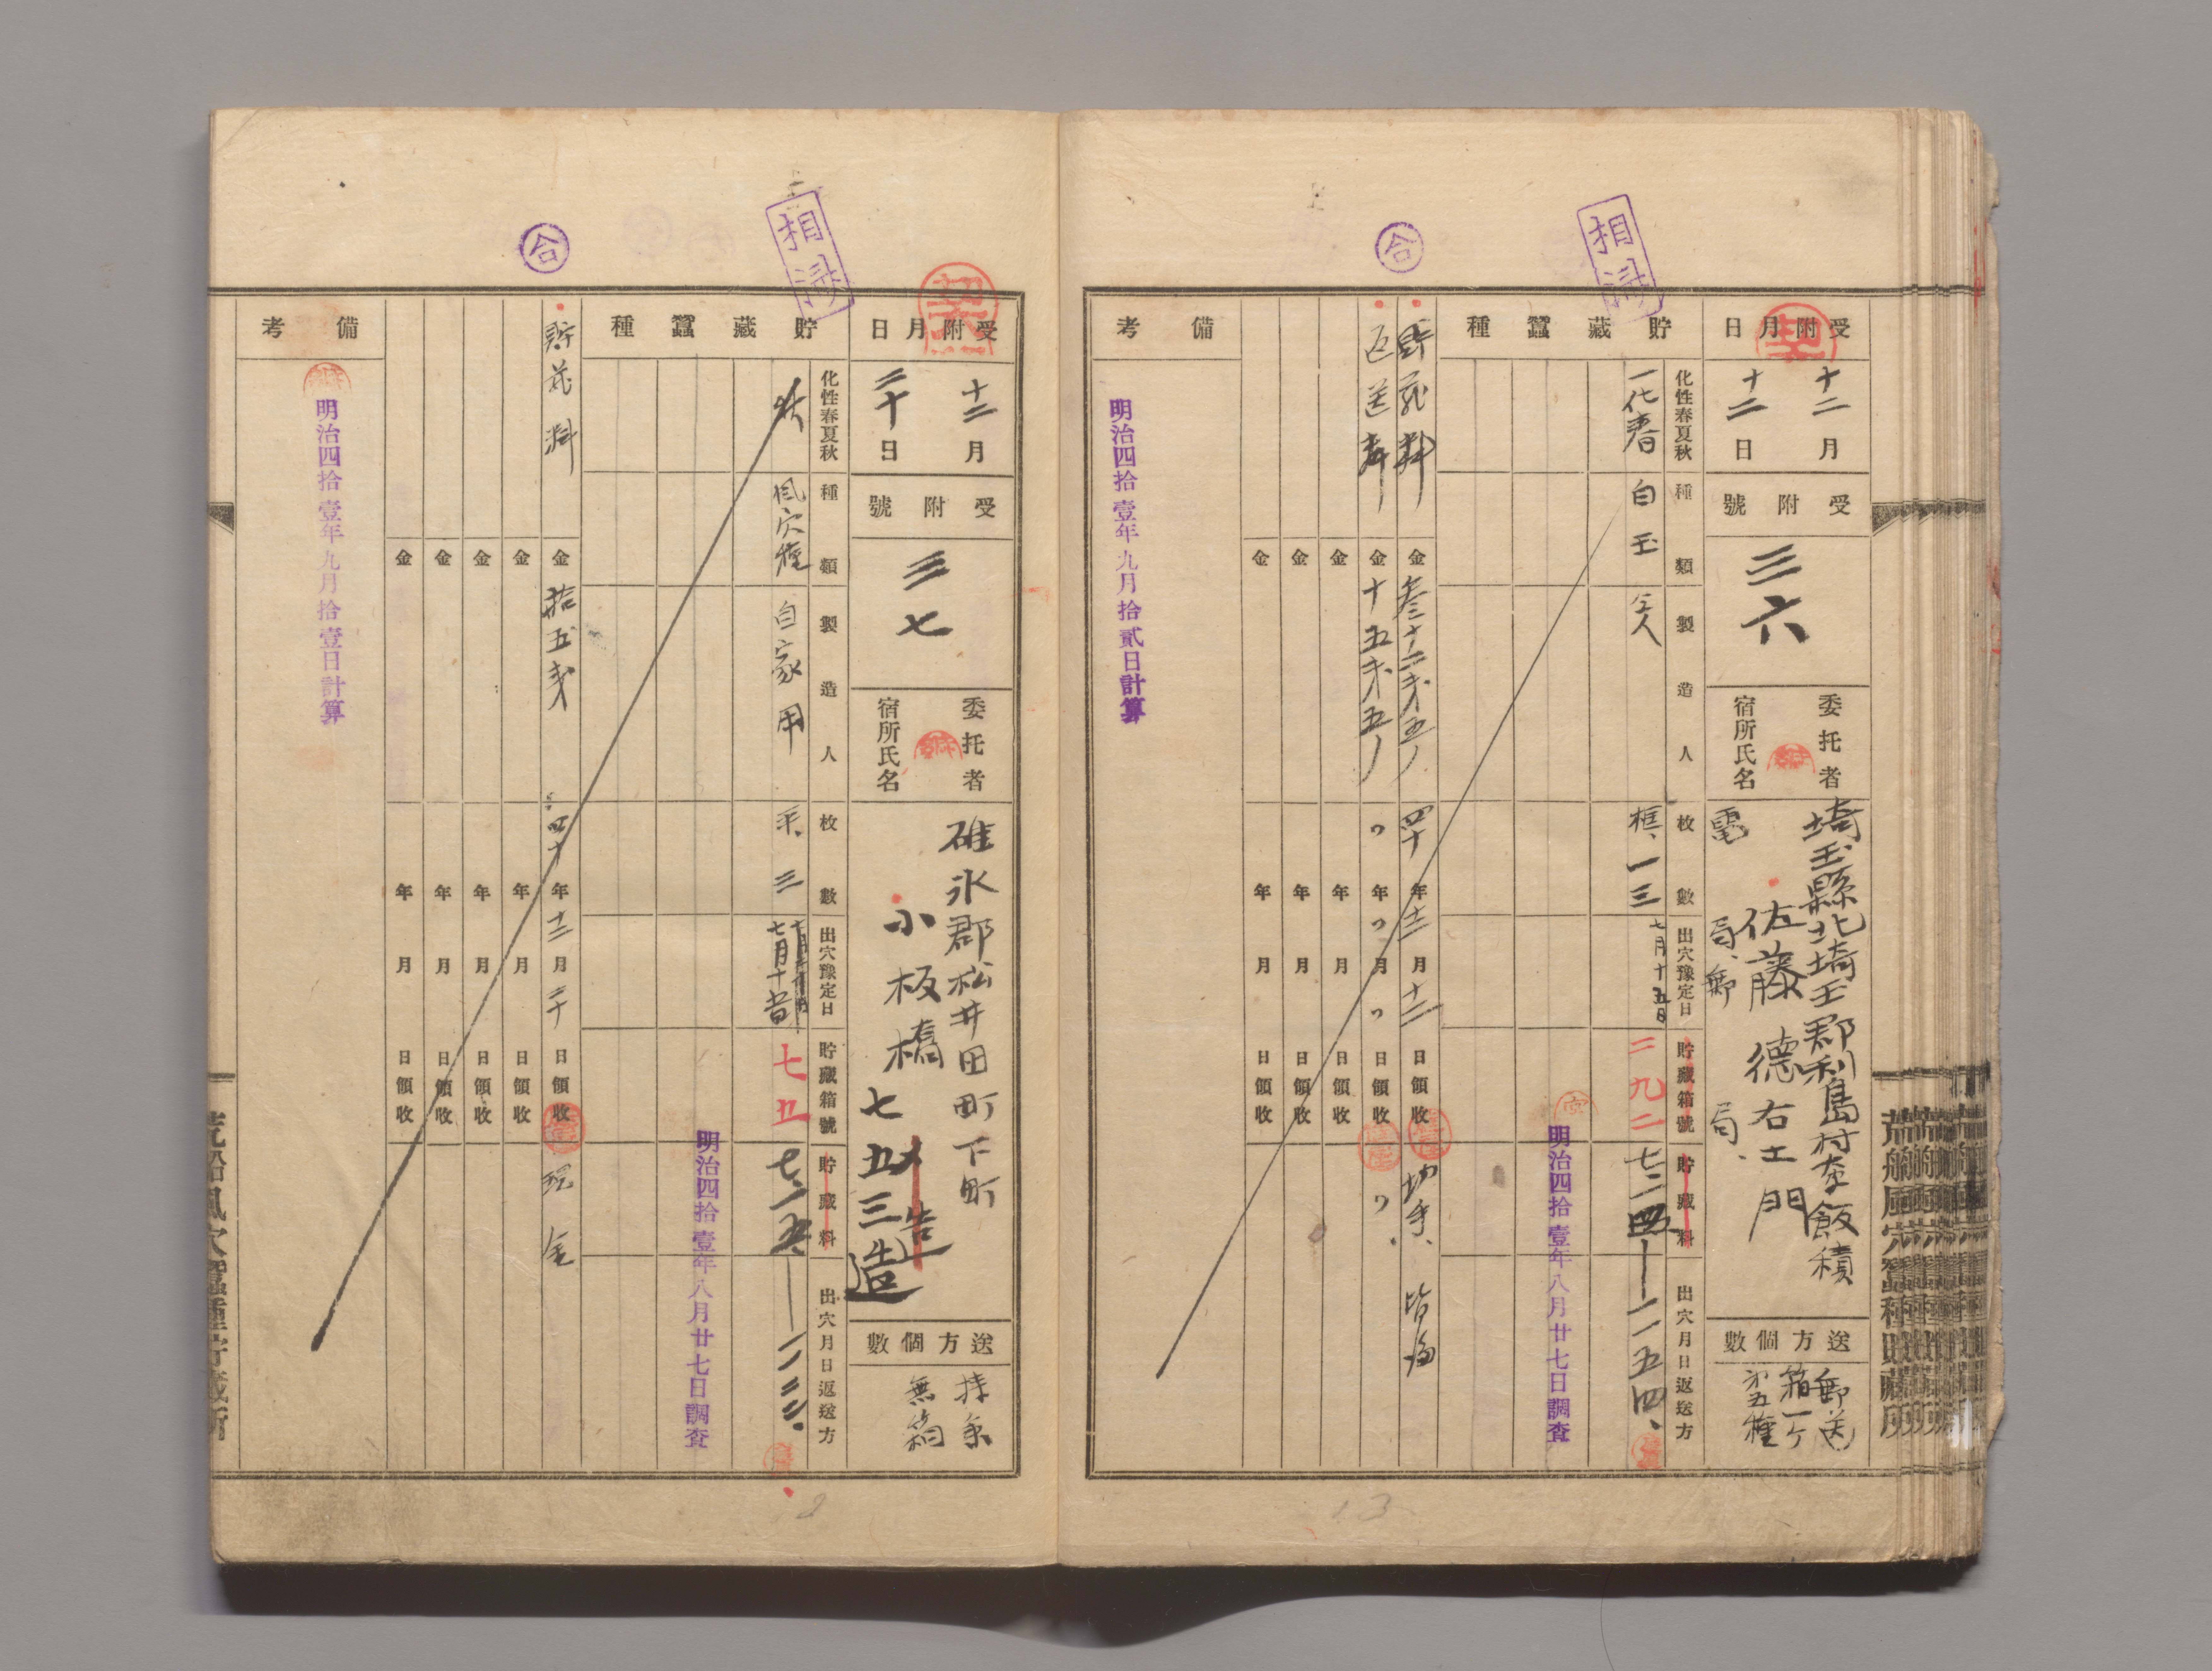 相済
合
受附月日
十二月
十二日
受附號
三六
委托者
宿所氏名
埼玉縣北埼玉郡利島村本飯積
佐藤德右エ門
電
局、郵
局、
送方個數
郵送
箱一ケ
第五種
貯藏蠶種
化性春夏秋
種類
製造人
枚數
出穴豫定日
貯藏箱號
貯藏料
出穴月日返送方
一化春
白玉
仝人
框、一三
七月十五日
二九二
七、二四、一一五四、
明治四拾壹年八月廿七日調査
貯藏料
金叁十二戔五ノ
四十年十二月十二日領收
切手、皆済
返送料
金十五戔五ノ
〃年〃月〃日領收
〃、
金 年 月 日領收
金 年 月 日領收
金 年 月 日領收
備考
明治四拾壹年九月拾貳日計算
荒船風穴蠶種貯藏所
13
相済
合
受附月日
十二月
二十日
受附號
三七
委托者
宿所氏名
碓氷郡松井田町下町
小板橋七五三造
送方個數
持参
無箱
貯藏蠶種
化性春夏秋
種類
製造人
枚數
出穴豫定日
貯藏箱號
貯藏料
出穴月日返送方
秋
風穴種
自家用
平、三
七月十五日
七五
明治四拾壹年八月廿七日調査
貯藏料
金拾五戔
四十年十二月二十日領收
現金
金 年 月 日領收
金 年 月 日領收
金 年 月 日領收
金 年 月 日領收
備考
明治四拾壹年九月拾壹日計算
荒船風穴蠶種貯藏所